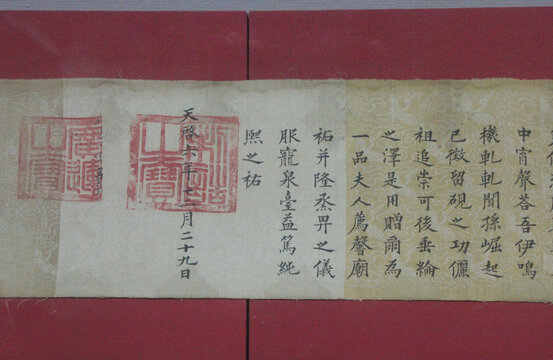 中宵聲荅吾伊鳴
機軋軋聞孫崛起
已徵留硯之功儷
祖追崇可後垂綸
之澤是用贈爾為
一品夫人薦馨廟
祏并隆烝畀之儀
服寵泉臺益篤純
熙之祐
天啓六年十二月二十九日